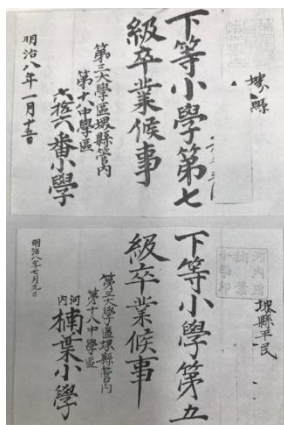 堺縣
下等小學第七
級卒業候事
第三大學區堺縣管内
第十八中學區
六拾六番小學
明治八年一月廿五日
堺縣平民
下等小學第五
級卒業候事
第三大學區堺縣管内
第十八中學區
河内
楠葉小學
明治八年七月九日